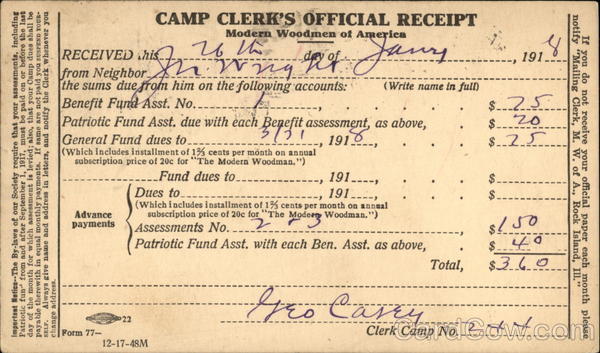 CAMP CLERK'S OFFICIAL RECEIPT
Modern Woodmen of America
RECEIVED this 26th day of Jany 1918
from Neighbor J M Wright
the sums due from him on the following accounts: (Write name in full)
Benefit Fund Asst. No. 1 $ 75
Patriotic Fund Asst. due with each Benefit assessment, as above, $ 20
General Fund dues to 3/31 1918, $ 25
(Which includes installment of 1⅔ cents per month on annual
subscription price of 20c for "The Modern Woodman.")
Fund dues to 191 , $
Advance payments
Dues to 191 , $
(Which includes installment of 1⅔ cents per month on annual
subscription price of 20c for "The Modern Woodman.")
Assessments No. 2 & 3 $ 150
Patriotic Fund Asst. with each Ben. Asst. as above, $ 40
Total, $ 360
Geo Casey
Clerk Camp No.
22
Form 77—
12-17-48M
Important Notice—The By-laws of our Society require that your assessments, including
Patriotic fund from and after September 1, 1917, must be paid on or before the last
day of the month for which assessment is levied; also, that your Camp dues shall be
payable therewith in equal monthly payments. If same are not paid you suspend YOUR-
SELF. Always give name and address in letters, and notify the Clerk whenever you
change address.
If you do not receive your official paper each month please
notify "Mailing Clerk, M. W. of A., Rock Island, Ill.
CardCow.com